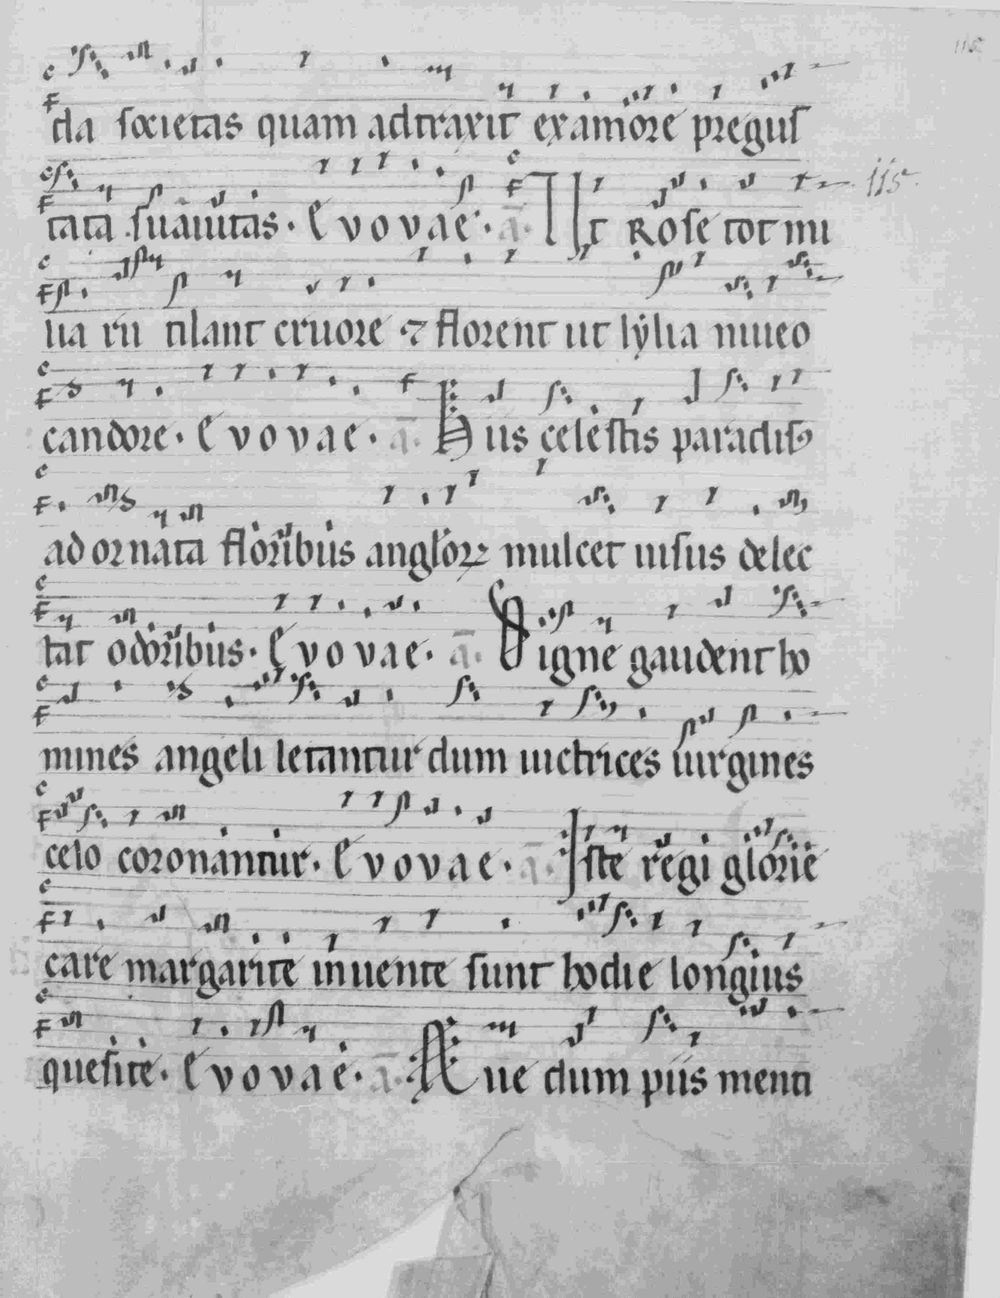 da societas quam adtraxit examore pregus
tata suauitas. Evovae. a. Ut Rose tot mi
lia ru tilant cruore ⁊ florent ut lylia niueo
candore. Evovae. a. Huis celestis paradisꝰ
ad ornata floribus anglorꝝ mulcet uisus delec
tat odoribus. Evovae. a. Digne gaudent ho
mines angeli letantur dum uictrices uirgines
celo coronantur. Evovae. a. Iste regi glorie
care margarite inuente sunt hodie longius
quesite. Evovae. a. Aue dum piis menti